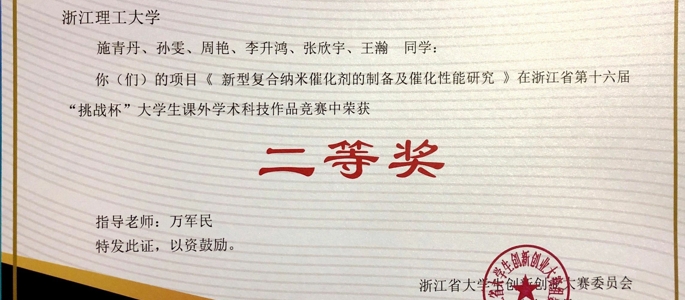 浙江理工大学
施青丹、孙雯、周艳、李升鸿、张欣宇、王瀚 同学：
你（们）的项目《 新型复合纳米催化剂的制备及催化性能研究 》在浙江省第十六届
“挑战杯”大学生课外学术科技作品竞赛中荣获
二等奖
指导老师：万军民
特发此证，以资鼓励。
浙江省大学生创新创业大赛委员会